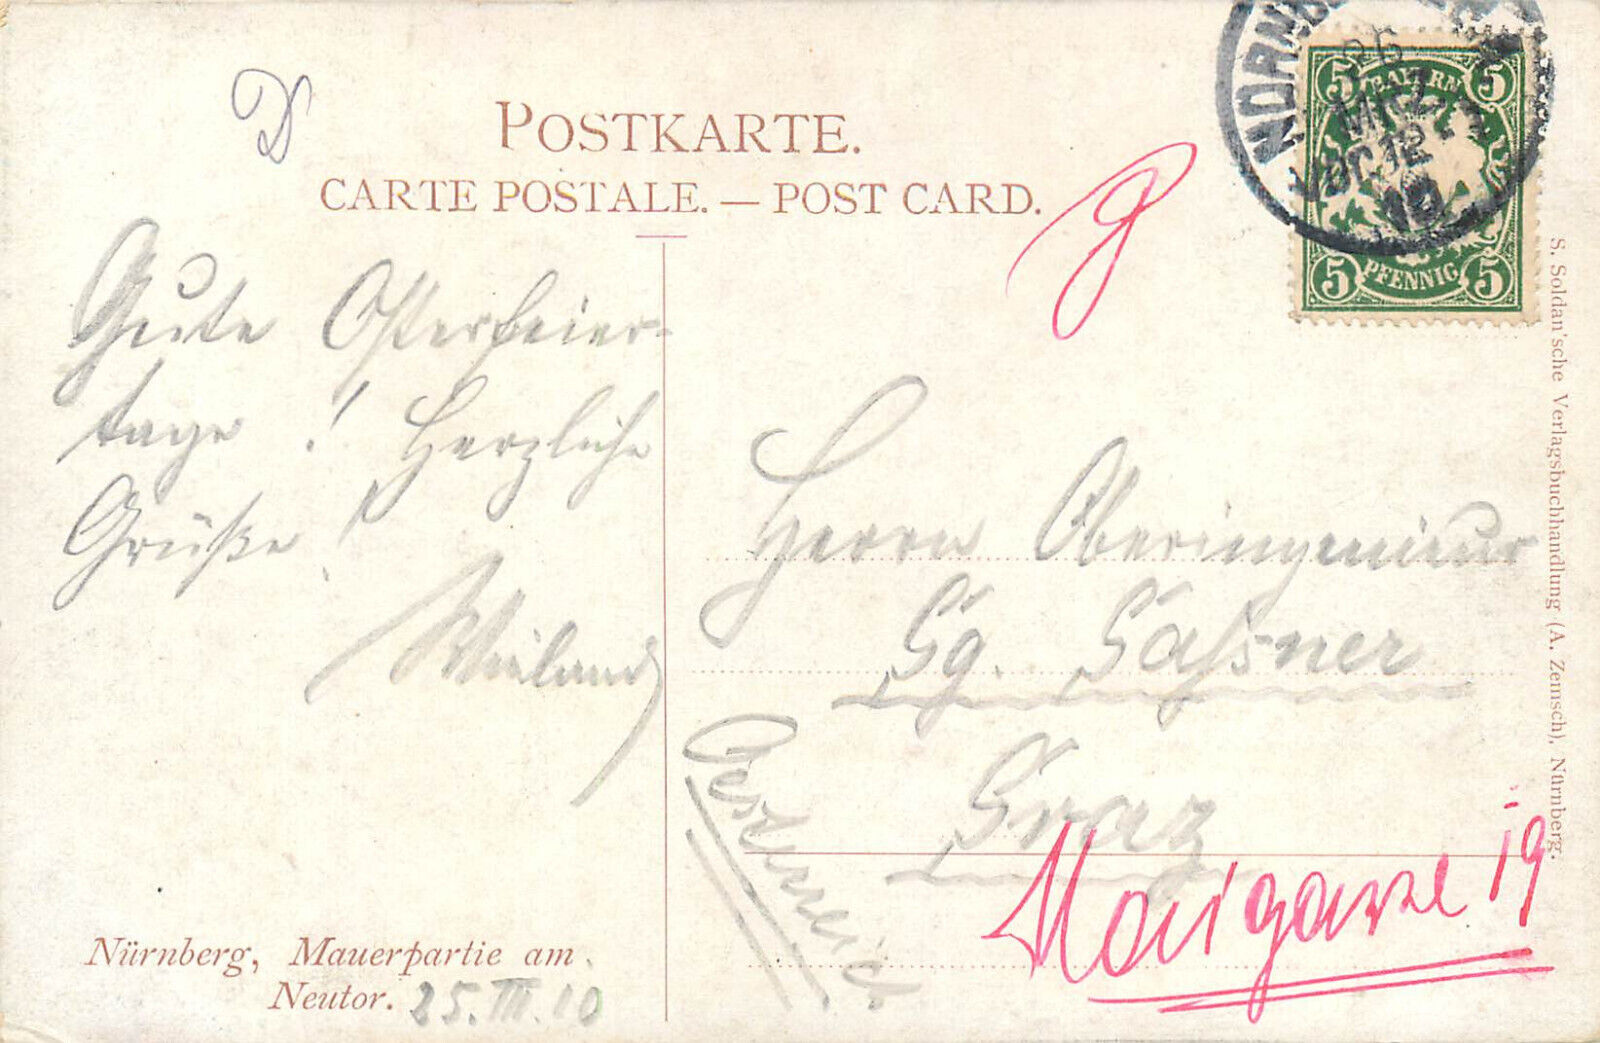 POSTKARTE.
CARTE POSTALE. — POST CARD.
Gute Osterfeier-
tage! Herzliche
Grüße!
Wieland
Nürnberg, Mauerpartie am
Neutor. 25.III.10
Herrn Oberingenieur
Gg. Gaßner
Graz
Oesterreich
19
5 BAYERN 5
5 PFENNIG 5
26
MRZ
10
S. Soldan'sche Verlagsbuchhandlung (A. Zemsch), Nürnberg.